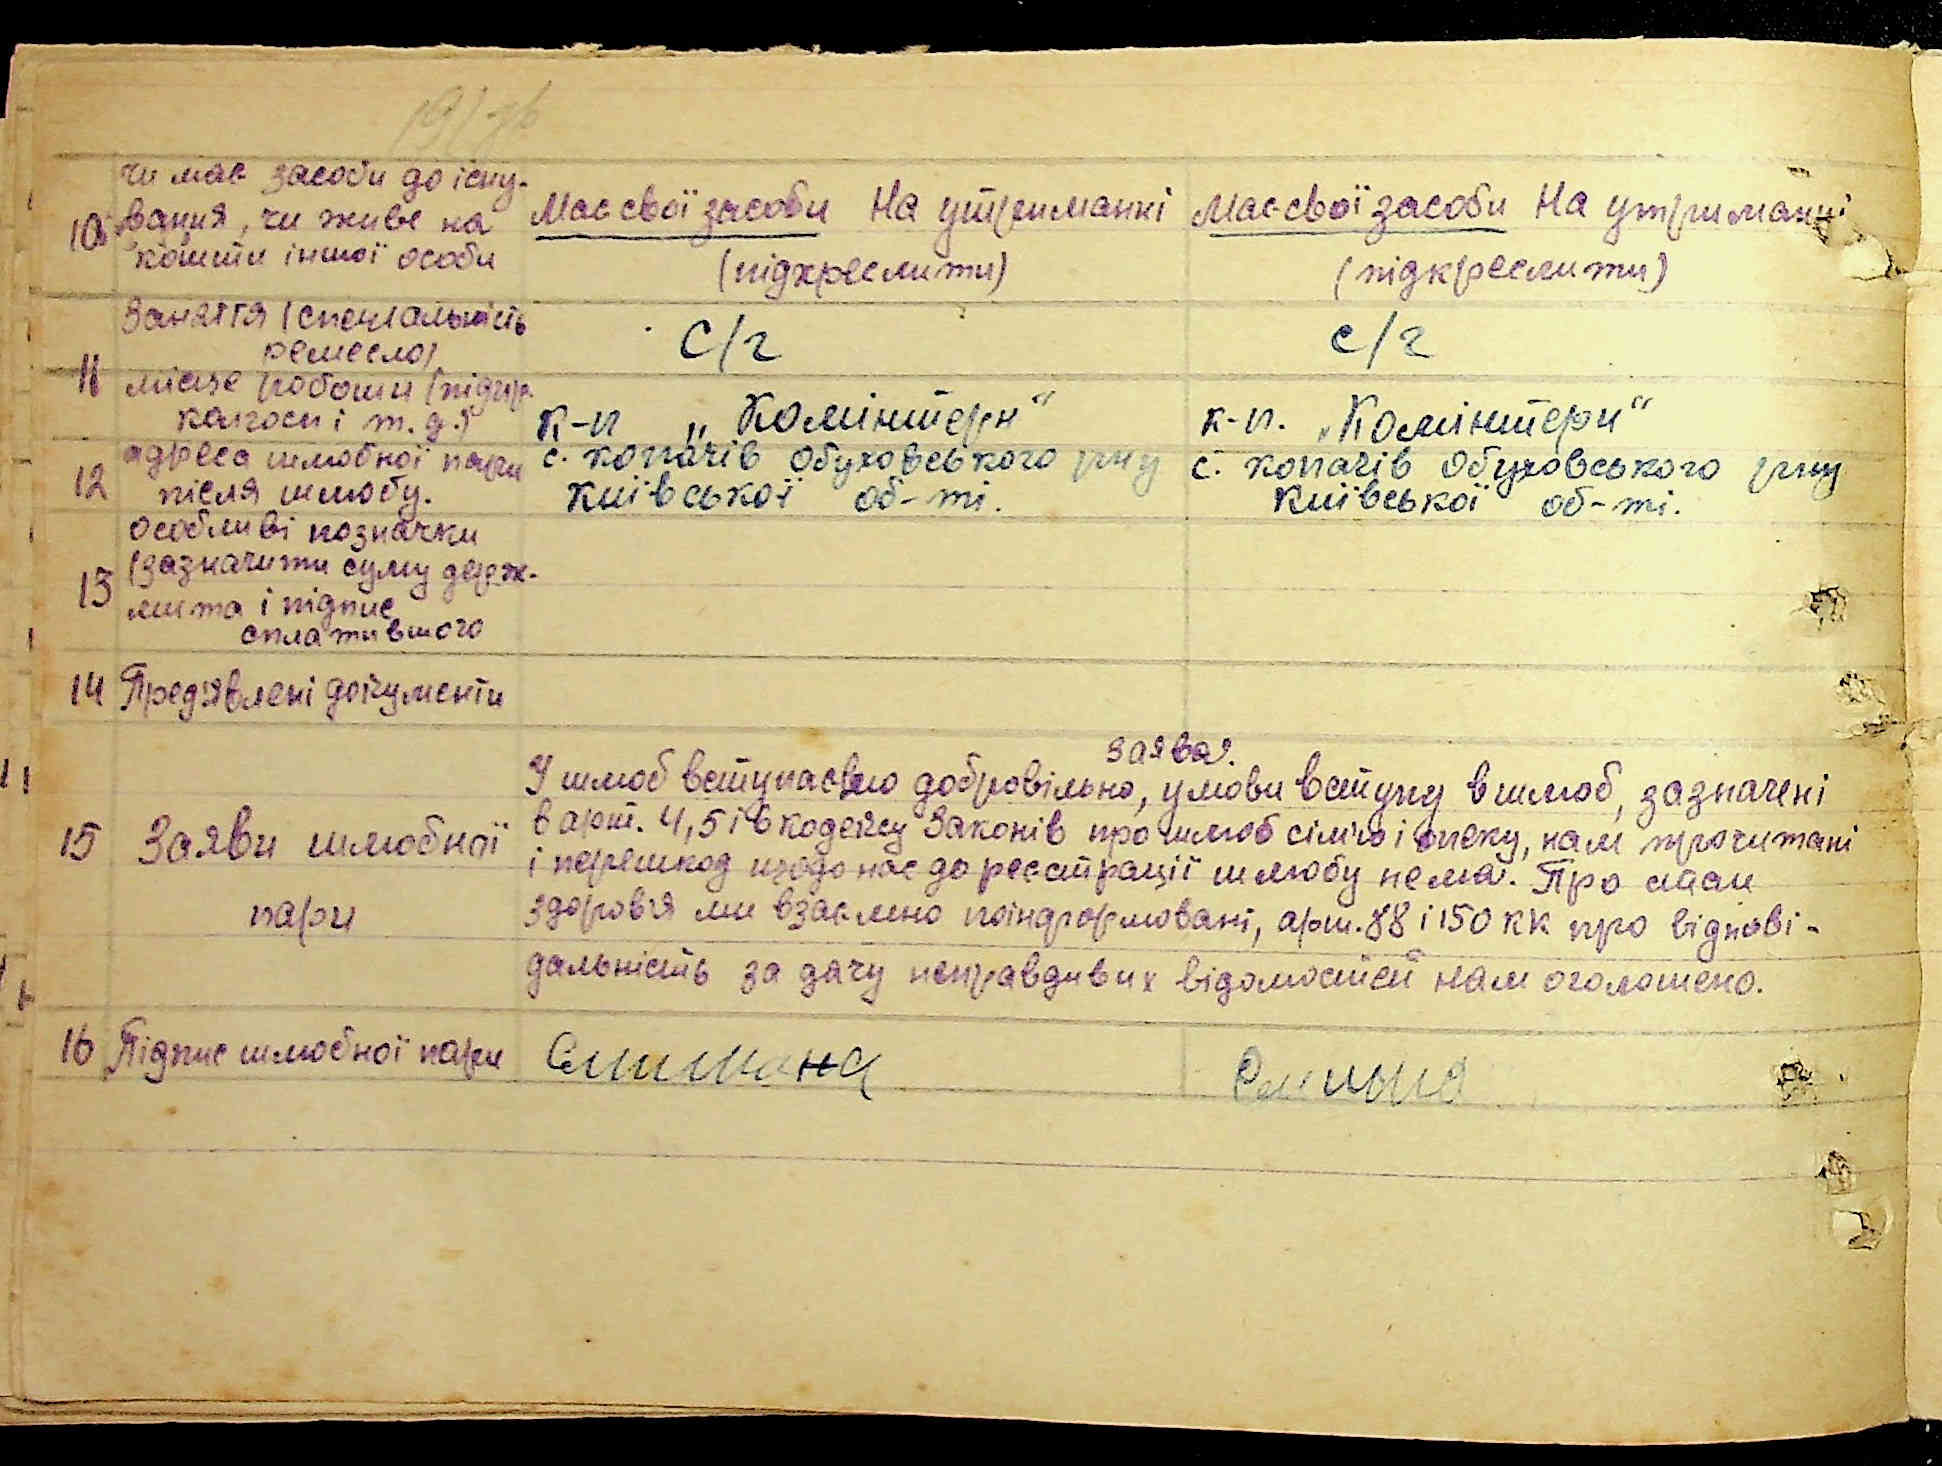 10 чи має засоби до існу-
вання, чи живе на
кошти іншої особи
Має свої засоби На утриманні
(підкреслити)
Має свої засоби На утриманні
(підкреслити)
11 Заняття (спеціальність
ремесло)
с/г
с/г
місце роботи (підпр.
колгосп і т. д.)
к-п „Комінтерн“
к-п. „Комінтерн“
12 адреса шлюбної пари
після шлюбу.
с. копачів Обуховського р-ну
Київської об-ті.
с. копачів Обуховського р-ну
Київської об-ті.
13 особливі позначки
(зазначити суму держ-
мита і підпис
сплатившого
14 Пред'явлені документи
15 Заяви шлюбної
пари
заява.
У шлюб вступаємо добровільно, умови вступу в шлюб, зазначені
в арт. 4, 5 і 6 кодексу Законів про шлюб сім'ю і опеку, нам прочитані
і перешкод щодо нас до реєстрації шлюбу нема. Про стан
здоров'я ми взаємно поінформовані, арт. 88 і 150 КК про відпові-
дальність за дачу неправдивих відомостей нам оголошено.
16 Підпис шлюбної пари